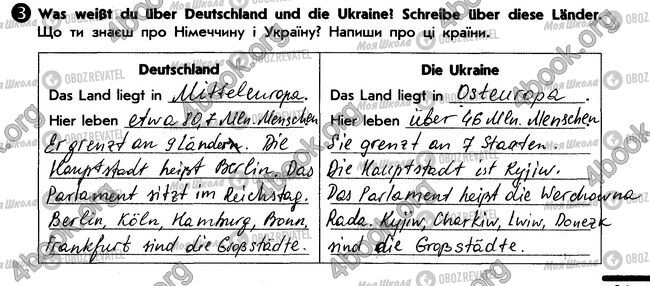 3 Was weißt du über Deutschland und die Ukraine? Schreibe über diese Länder.
Що ти знаєш про Німеччину і Україну? Напиши про ці країни.
Deutschland
Das Land liegt in Mitteleuropa.
Hier leben etwa 80,7 Mln. Menschen
Er grenzt an 9 Ländern. Die
Hauptstadt heißt Berlin. Das
Parlament sitzt im Reichstag.
Berlin, Köln, Hamburg, Bonn,
Frankfurt sind die Großstädte.
Die Ukraine
Das Land liegt in Osteuropa.
Hier leben über 46 Mln. Menschen
Sie grenzt an 7 Staaten.
Die Hauptstadt ist Kyjiw.
Das Parlament heißt die Werchowna
Rada. Kyjiw, Charkiw, Lwiw, Donezk
sind die Großstädte.